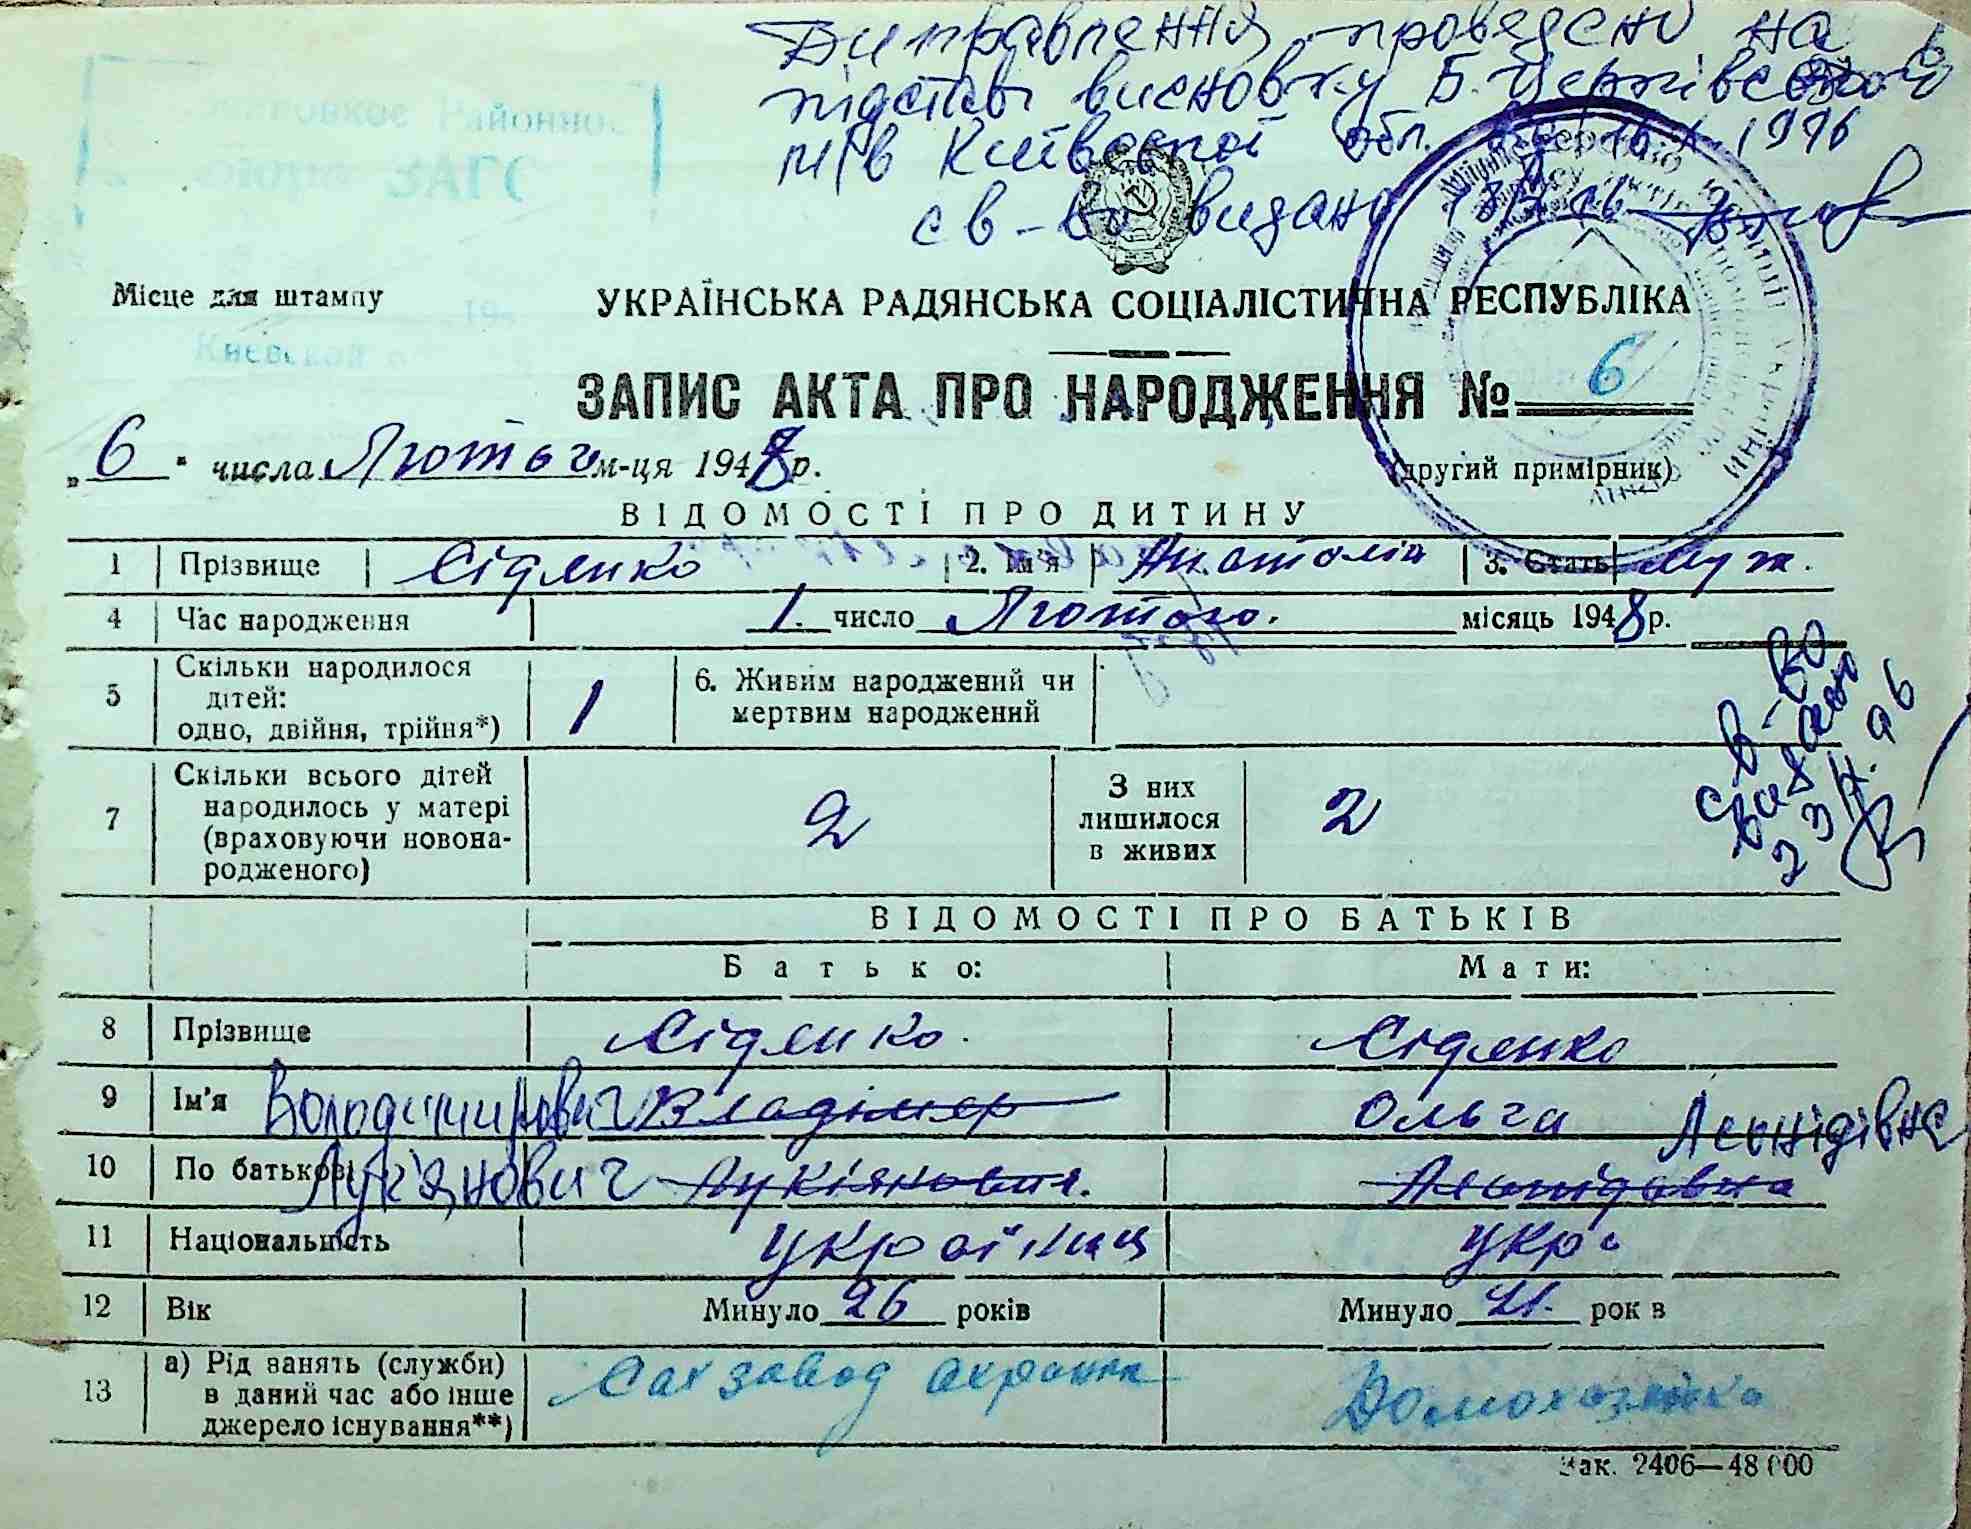 Виправлення проведено на
підставі висновку Б. Церківського
м/в Київської обл. 1996
св-во видано
Місце для штампу
УКРАЇНСЬКА РАДЯНСЬКА СОЦІАЛІСТИЧНА РЕСПУБЛІКА
Киевской о
ЗАПИС АКТА ПРО НАРОДЖЕННЯ № 6
„6" числа Лютого м-ця 1948 р.
(другий примірник)
ВІДОМОСТІ ПРО ДИТИНУ
1 Прізвище Сідлико 2. Ім'я Анатолій 3. Стать Муж.
4 Час народження 1. число Лютого. місяць 1948 р.
5 Скільки народилося дітей: одно, двійня, трійня*) 1 6. Живим народжений чи мертвим народжений
св-во
видано
23 IV. 96
7 Скільки всього дітей народилось у матері (враховуючи новонародженого) 2 З них лишилося в живих 2
ВІДОМОСТІ ПРО БАТЬКІВ
Батько: Мати:
8 Прізвище Сідлико. Сідлико
9 Ім'я Володимирович Владімер Ольга Леонідівна
10 По батькові Лук'янович Лукіянович. Леонідовна
11 Національність Українц Укр.
12 Вік Минуло 26 років Минуло 21. рок в
13 а) Рід занять (служби) в даний час або інше джерело існування**) Сах завод Домохозяйка
Зак. 2406—48 000